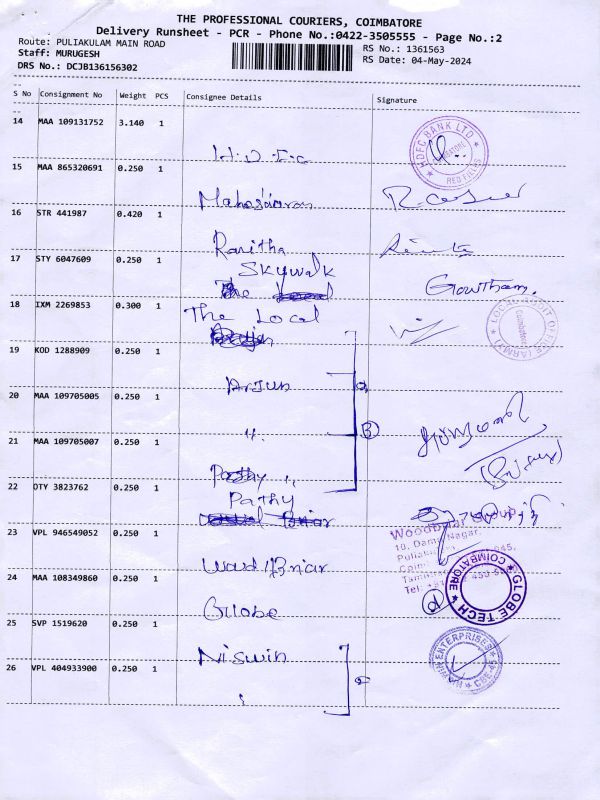 THE PROFESSIONAL COURIERS, COIMBATORE
Delivery Runsheet - PCR - Phone No.:0422-3505555 - Page No.:2
Route: PULIAKULAM MAIN ROAD
RS No.: 1361563
Staff: MURUGESH
RS Date: 04-May-2024
DRS No.: DCJB136156302
S No Consignment No Weight PCS Consignee Details Signature
14 MAA 109131752 3.140 1
HDFC BANK LTD
RED FIELDS
15 MAA 865320691 0.250 1
16 STR 441987 0.420 1
Ranitha
17 STY 6047609 0.250 1
Skywalk
The
Gowtham.
18 IXM 2269853 0.300 1
The Local
19 KOD 1288909 0.250 1
Arjun
20 MAA 109705005 0.250 1
21 MAA 109705007 0.250 1
Pathy
22 OTY 3823762 0.250 1
Pathy
23 VPL 946549052 0.250 1
Woodbriar Group
24 MAA 108349860 0.250 1
Globe
GLOBE TECH
COIMBATORE
25 SVP 1519620 0.250 1
Niswin
26 VPL 404933900 0.250 1
ENTERPRISES